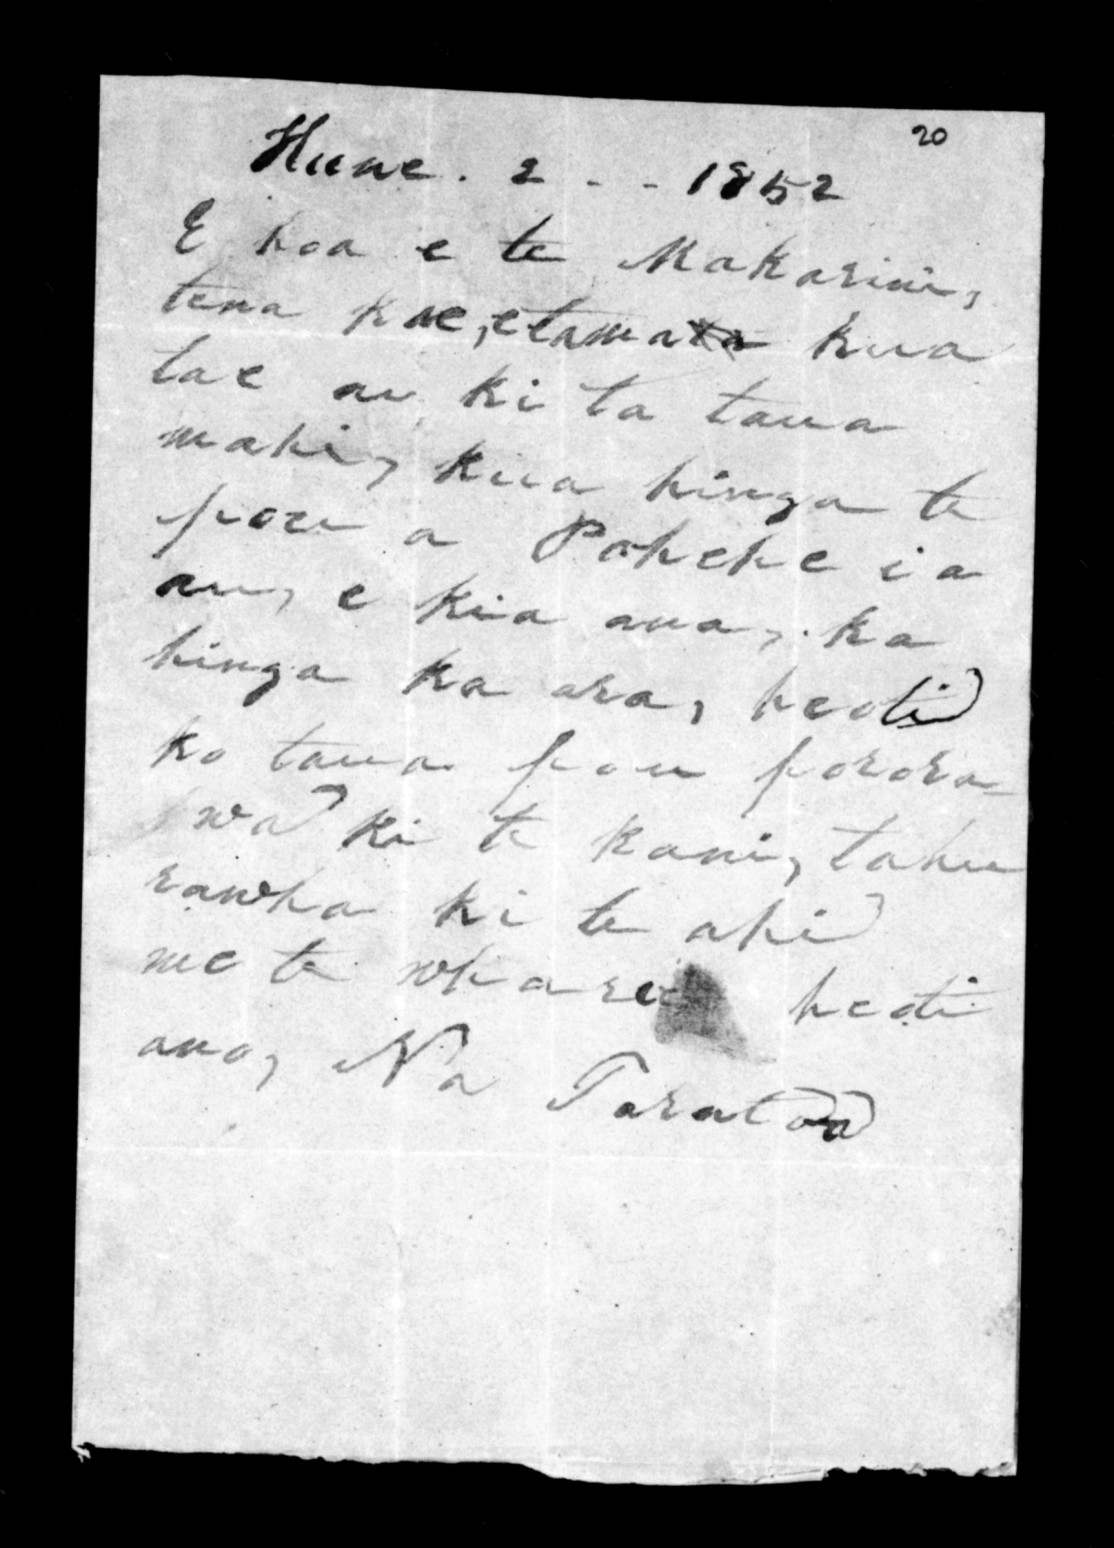 20
Hune. 2 - - 1852
E hoa e te Makarini,
tena koe, etama kua
tae au ki ta taua
mahi, kua hinga te
pou a Pakeke i a
au, e kia ana, ka
hinga ka ara, heoti
ko taua pou porora-
wa ki te kani, tahu
rawha ki te ahi
me te whare heoti
ano, Na Taratoa